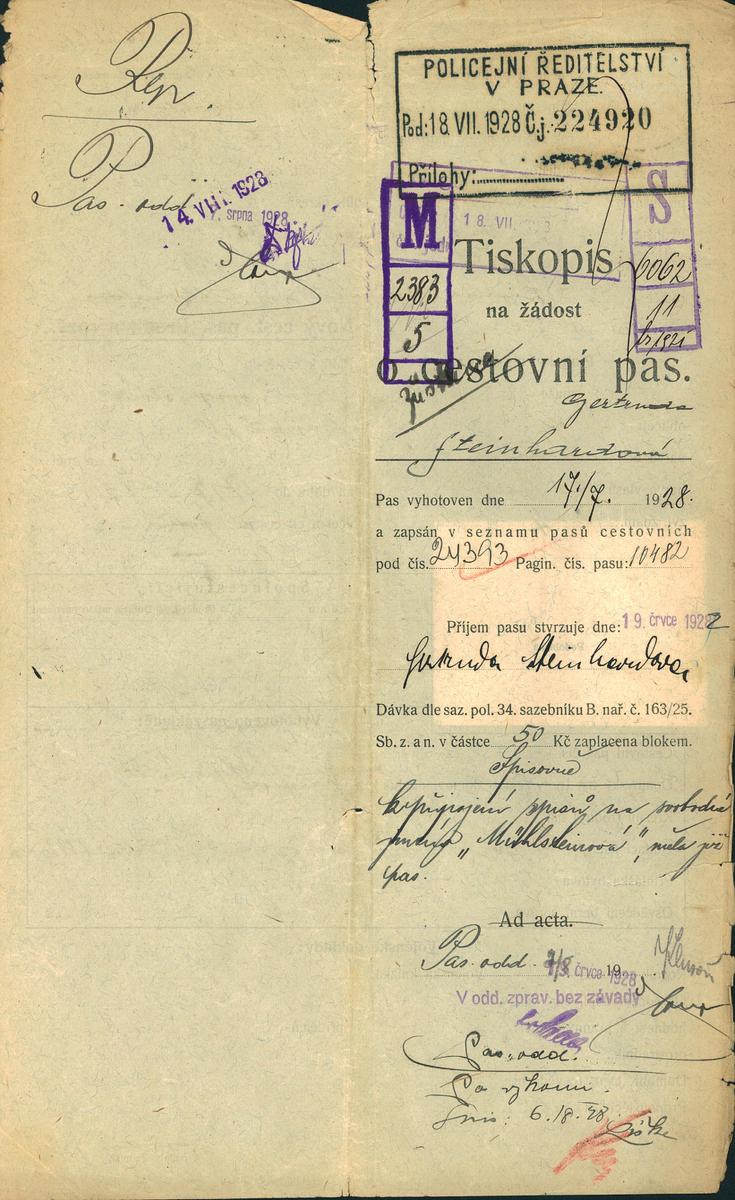 Rep.
Pas. odd.
14. VIII. 1928
7. srpna 1928
POLICEJNÍ ŘEDITELSTVÍ
V PRAZE.
Pod: 18. VII. 1928 Č.j. 224920
Přílohy:
18. VII.
M
2383
5
S
6062
11
Tiskopis
na žádost
o cestovní pas.
Gertruda
Steinhardová
Pas vyhotoven dne 17./7. 1928.
a zapsán v seznamu pasů cestovních
pod čís. 24393 Pagin. čís. pasu: 10482
Příjem pasu stvrzuje dne: 19. črvce 1928
Gertruda Steinhardova
Dávka dle saz. pol. 34. sazebníku B. nař. č. 163/25.
Sb. z. a n. v částce 50 Kč zaplacena blokem.
Spisovně
k připojení spisů na svobodné
jméno „Mühlsteinová", měla již
pas.
Ad acta.
Pas. odd. črvce 1928 19
V odd. zprav. bez závady
Pas. odd.
Po výkonu.
6.18.28